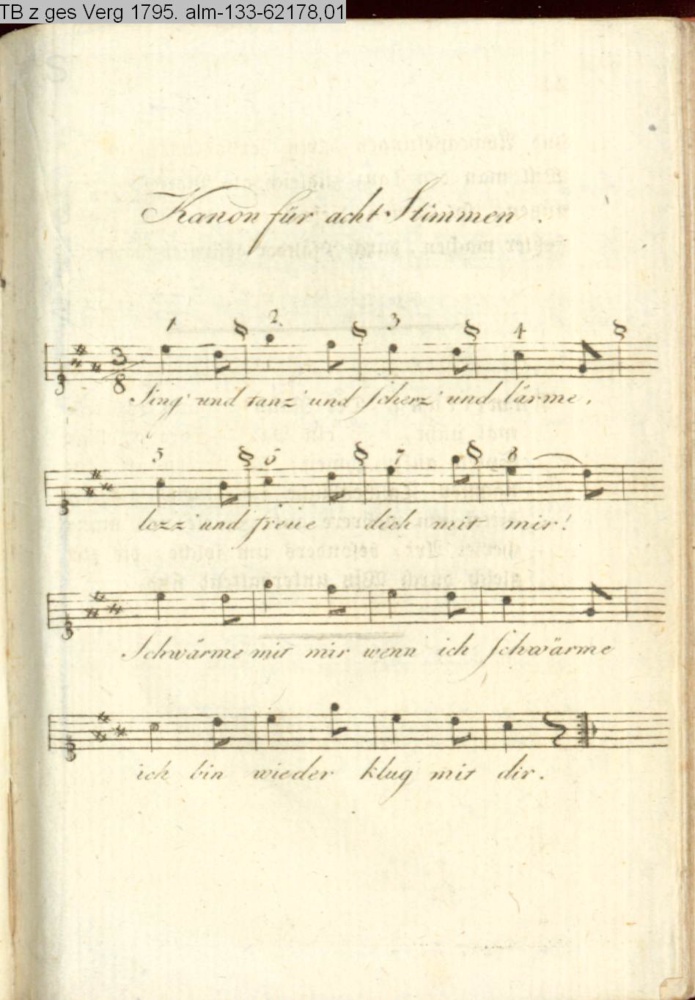 TB z ges Verg 1795. alm-133-62178,01
Kanon für acht Stimmen.
1 § 2. § 3 § 4 §
3/8
Sing' und tanz' und scherz' und lärme,
5 § 6 § 7 § 8
und freue dich mit mir!
Schwärme mit mir wenn ich schwärme
ich bin wieder klug mit dir.